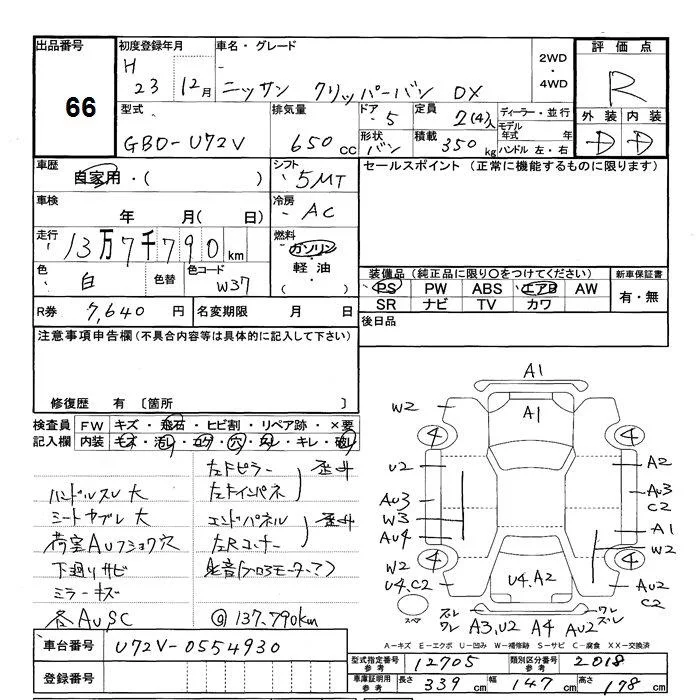 出品番号
66
初度登録年月
H 23年 12月
車名・グレード
ニッサン クリッパーバン DX
2WD
・
4WD
評価点
R
外装 内装
D D
型式
GBD-U72V
排気量
650 cc
ドア
・5
形状
バン
定員
2(4)人
積載
350 kg
ディーラー・並行
モデル年式 年
ハンドル 左・右
車歴
自家用・( )
シフト
・5MT
車検
年 月( 日)
冷房
・AC
走行
13万7千790km
燃料
ガソリン
軽油
( )
色
白
色替
色コード
W37
R券 7,640円
名変期限 月 日
セールスポイント (正常に機能するものに限ります)
装備品 (純正品に限り○をつけてください)
PS PW ABS エアB AW
SR ナビ TV カワ
新車保証書
有・無
後日品
注意事項申告欄(不具合内容等は具体的に記入して下さい)
修復歴 有 〔箇所 〕
検査員 記入欄
FW キズ・飛石・ヒビ割・リペア跡・×要
内装 ・穴・ ・キレ・
左Fピラー 歪み
ハンドルスレ大 左Fインパネ
シートヤブレ大 エンドパネル 歪み
荷室AUフショク穴 左Rコーナー
下廻りサビ
ミラーキズ
各AUSC @137,790km
車台番号 U72V-0554930
登録番号
A1
W2 A1
4 4
U2 A2
AU3 AU3
W3 C2
AU4 A1
W2
W2 4 4
U4.C2 U4.A2 AU2
C2
スペア
ズレ ワレ A3,U2 A4 AU2 ワレ ズレ
A-キズ E-エクボ U-凹み W-補修跡 S-サビ C-腐食 XX-交換済
型式指定番号 参考 12705
類別区分番号 参考 2018
車庫証明用 参考 長さ 339 cm 幅 147 cm 高さ 178 cm